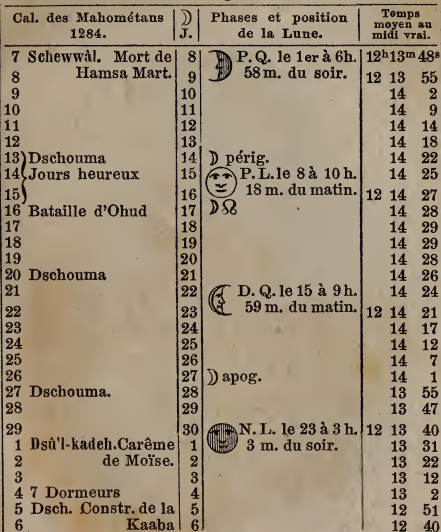 Cal. des Mahométans 1284. | ☽ J. | Phases et position de la Lune. | Temps moyen au midi vrai.
7 Schewwâl. Mort de | 8 | P. Q. le 1er à 6h. | 12h13m48s
8 Hamsa Mart. | 9 | 58 m. du soir. | 12 13 55
9 | 10 | | 14 2
10 | 11 | | 14 9
11 | 12 | | 14 14
12 | 13 | | 14 18
13) Dschouma | 14 | ☽ périg. | 14 22
14 Jours heureux | 15 | P. L. le 8 à 10 h. | 14 25
15) | 16 | 18 m. du matin. | 12 14 27
16 Bataille d'Ohud | 17 | ☽☊ | 14 28
17 | 18 | | 14 29
18 | 19 | | 14 29
19 | 20 | | 14 28
20 Dschouma | 21 | | 14 26
21 | 22 | D. Q. le 15 à 9 h. | 14 24
22 | 23 | 59 m. du matin. | 12 14 21
23 | 24 | | 14 17
24 | 25 | | 14 12
25 | 26 | | 14 7
26 | 27 | ☽ apog. | 14 1
27 Dschouma. | 28 | | 13 55
28 | 29 | | 13 47
29 | 30 | N. L. le 23 à 3 h. | 12 13 40
1 Dsû'l-kadeh. Carême | 1 | 3 m. du soir. | 13 31
2 de Moïse. | 2 | | 13 22
3 | 3 | | 13 12
4 7 Dormeurs | 4 | | 13 2
5 Dsch. Constr. de la | 5 | | 12 51
6 Kaaba | 6 | | 12 40